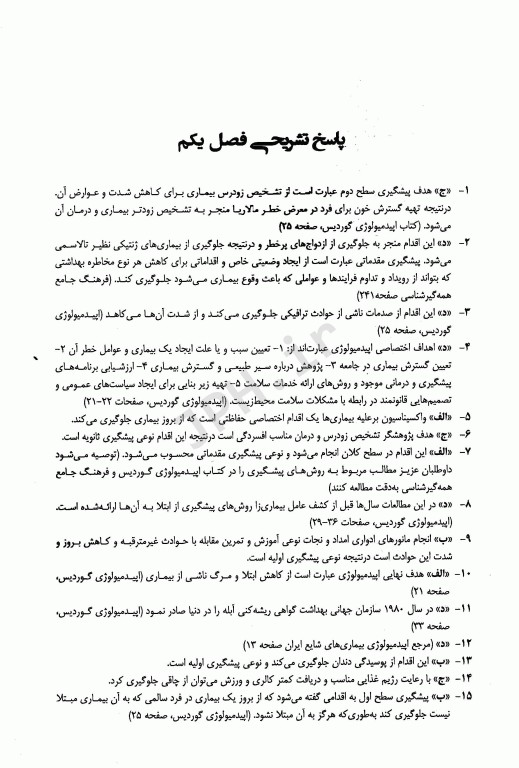 پاسخ تشریحی فصل یکم
۱- «ج» هدف پیشگیری سطح دوم عبارت است از تشخیص زودرس بیماری برای کاهش شدت و عوارض آن.
درنتیجه تهیه گسترش خون برای فرد در معرض خطر مالاریا منجر به تشخیص زودتر بیماری و درمان آن
می‌شود. (کتاب اپیدمیولوژی گوردیس، صفحه ۲۵)
۲- «د» این اقدام منجر به جلوگیری از ازدواج‌های پرخطر و درنتیجه جلوگیری از بیماری‌های ژنتیکی نظیر تالاسمی
می‌شود. پیشگیری مقدماتی عبارت است از ایجاد وضعیتی خاص و اقداماتی برای کاهش هر نوع مخاطره بهداشتی
که بتواند از رویداد و تداوم فرایندها و عواملی که باعث وقوع بیماری می‌شود جلوگیری کند. (فرهنگ جامع
همه‌گیرشناسی صفحه۲۴۱)
۳- «د» این اقدام از صدمات ناشی از حوادث ترافیکی جلوگیری می‌کند و از شدت آن‌ها می‌کاهد (اپیدمیولوژی
گوردیس، صفحه ۲۵)
۴- «د» اهداف اختصاصی اپیدمیولوژی عبارت‌اند از: ۱- تعیین سبب و یا علت ایجاد یک بیماری و عوامل خطر آن ۲-
تعیین گسترش بیماری در جامعه ۳- پژوهش درباره سیر طبیعی و گسترش بیماری ۴- ارزشیابی برنامه‌های
پیشگیری و درمانی موجود و روش‌های ارائه خدمات سلامت ۵- تهیه زیر بنایی برای ایجاد سیاست‌های عمومی و
تصمیم‌هایی قانونمند در رابطه با مشکلات سلامت محیط‌زیست. (اپیدمیولوژی گوردیس، صفحات ۲۲-۲۱)
۵- «الف» واکسیناسیون برعلیه بیماری‌ها یک اقدام اختصاصی حفاظتی است که از بروز بیماری جلوگیری می‌کند.
۶- «ج» هدف پژوهشگر تشخیص زودرس و درمان مناسب افسردگی است درنتیجه این اقدام نوعی پیشگیری ثانویه است.
۷- «الف» این اقدام در سطح کلان انجام می‌شود و نوعی پیشگیری مقدماتی محسوب می‌شود. (توصیه می‌شود
داوطلبان عزیز مطالب مربوط به روش‌های پیشگیری را در کتاب اپیدمیولوژی گوردیس و فرهنگ جامع
همه‌گیرشناسی به‌دقت مطالعه کنند)
۸- «د» در این مطالعات سال‌ها قبل از کشف عامل بیماری‌زا روش‌های پیشگیری از ابتلا به آن‌ها ارائه‌شده است.
(اپیدمیولوژی گوردیس، صفحات ۳۶-۲۹)
۹- «ب» انجام مانورهای ادواری امداد و نجات نوعی آموزش و تمرین مقابله با حوادث غیرمترقبه و کاهش بروز و
شدت این حوادث است درنتیجه نوعی پیشگیری اولیه است.
۱۰- «الف» هدف نهایی اپیدمیولوژی عبارت است از کاهش ابتلا و مرگ ناشی از بیماری (اپیدمیولوژی گوردیس،
صفحه ۲۱)
۱۱- «د» در سال ۱۹۸۰ سازمان جهانی بهداشت گواهی ریشه‌کنی آبله را در دنیا صادر نمود (اپیدمیولوژی گوردیس،
صفحه ۳۳)
۱۲- «د» (مرجع اپیدمیولوژی بیماری‌های شایع ایران صفحه ۱۳)
۱۳- «ب» این اقدام از پوسیدگی دندان جلوگیری می‌کند و نوعی پیشگیری اولیه است.
۱۴- «ج» با رعایت رژیم غذایی مناسب و دریافت کمتر کالری و ورزش می‌توان از چاقی جلوگیری کرد.
۱۵- «ب» پیشگیری سطح اول به اقدامی گفته می‌شود که از بروز یک بیماری در فرد سالمی که به آن بیماری مبتلا
نیست جلوگیری کند به‌طوری‌که هرگز به آن مبتلا نشود. (اپیدمیولوژی گوردیس، صفحه ۲۵)